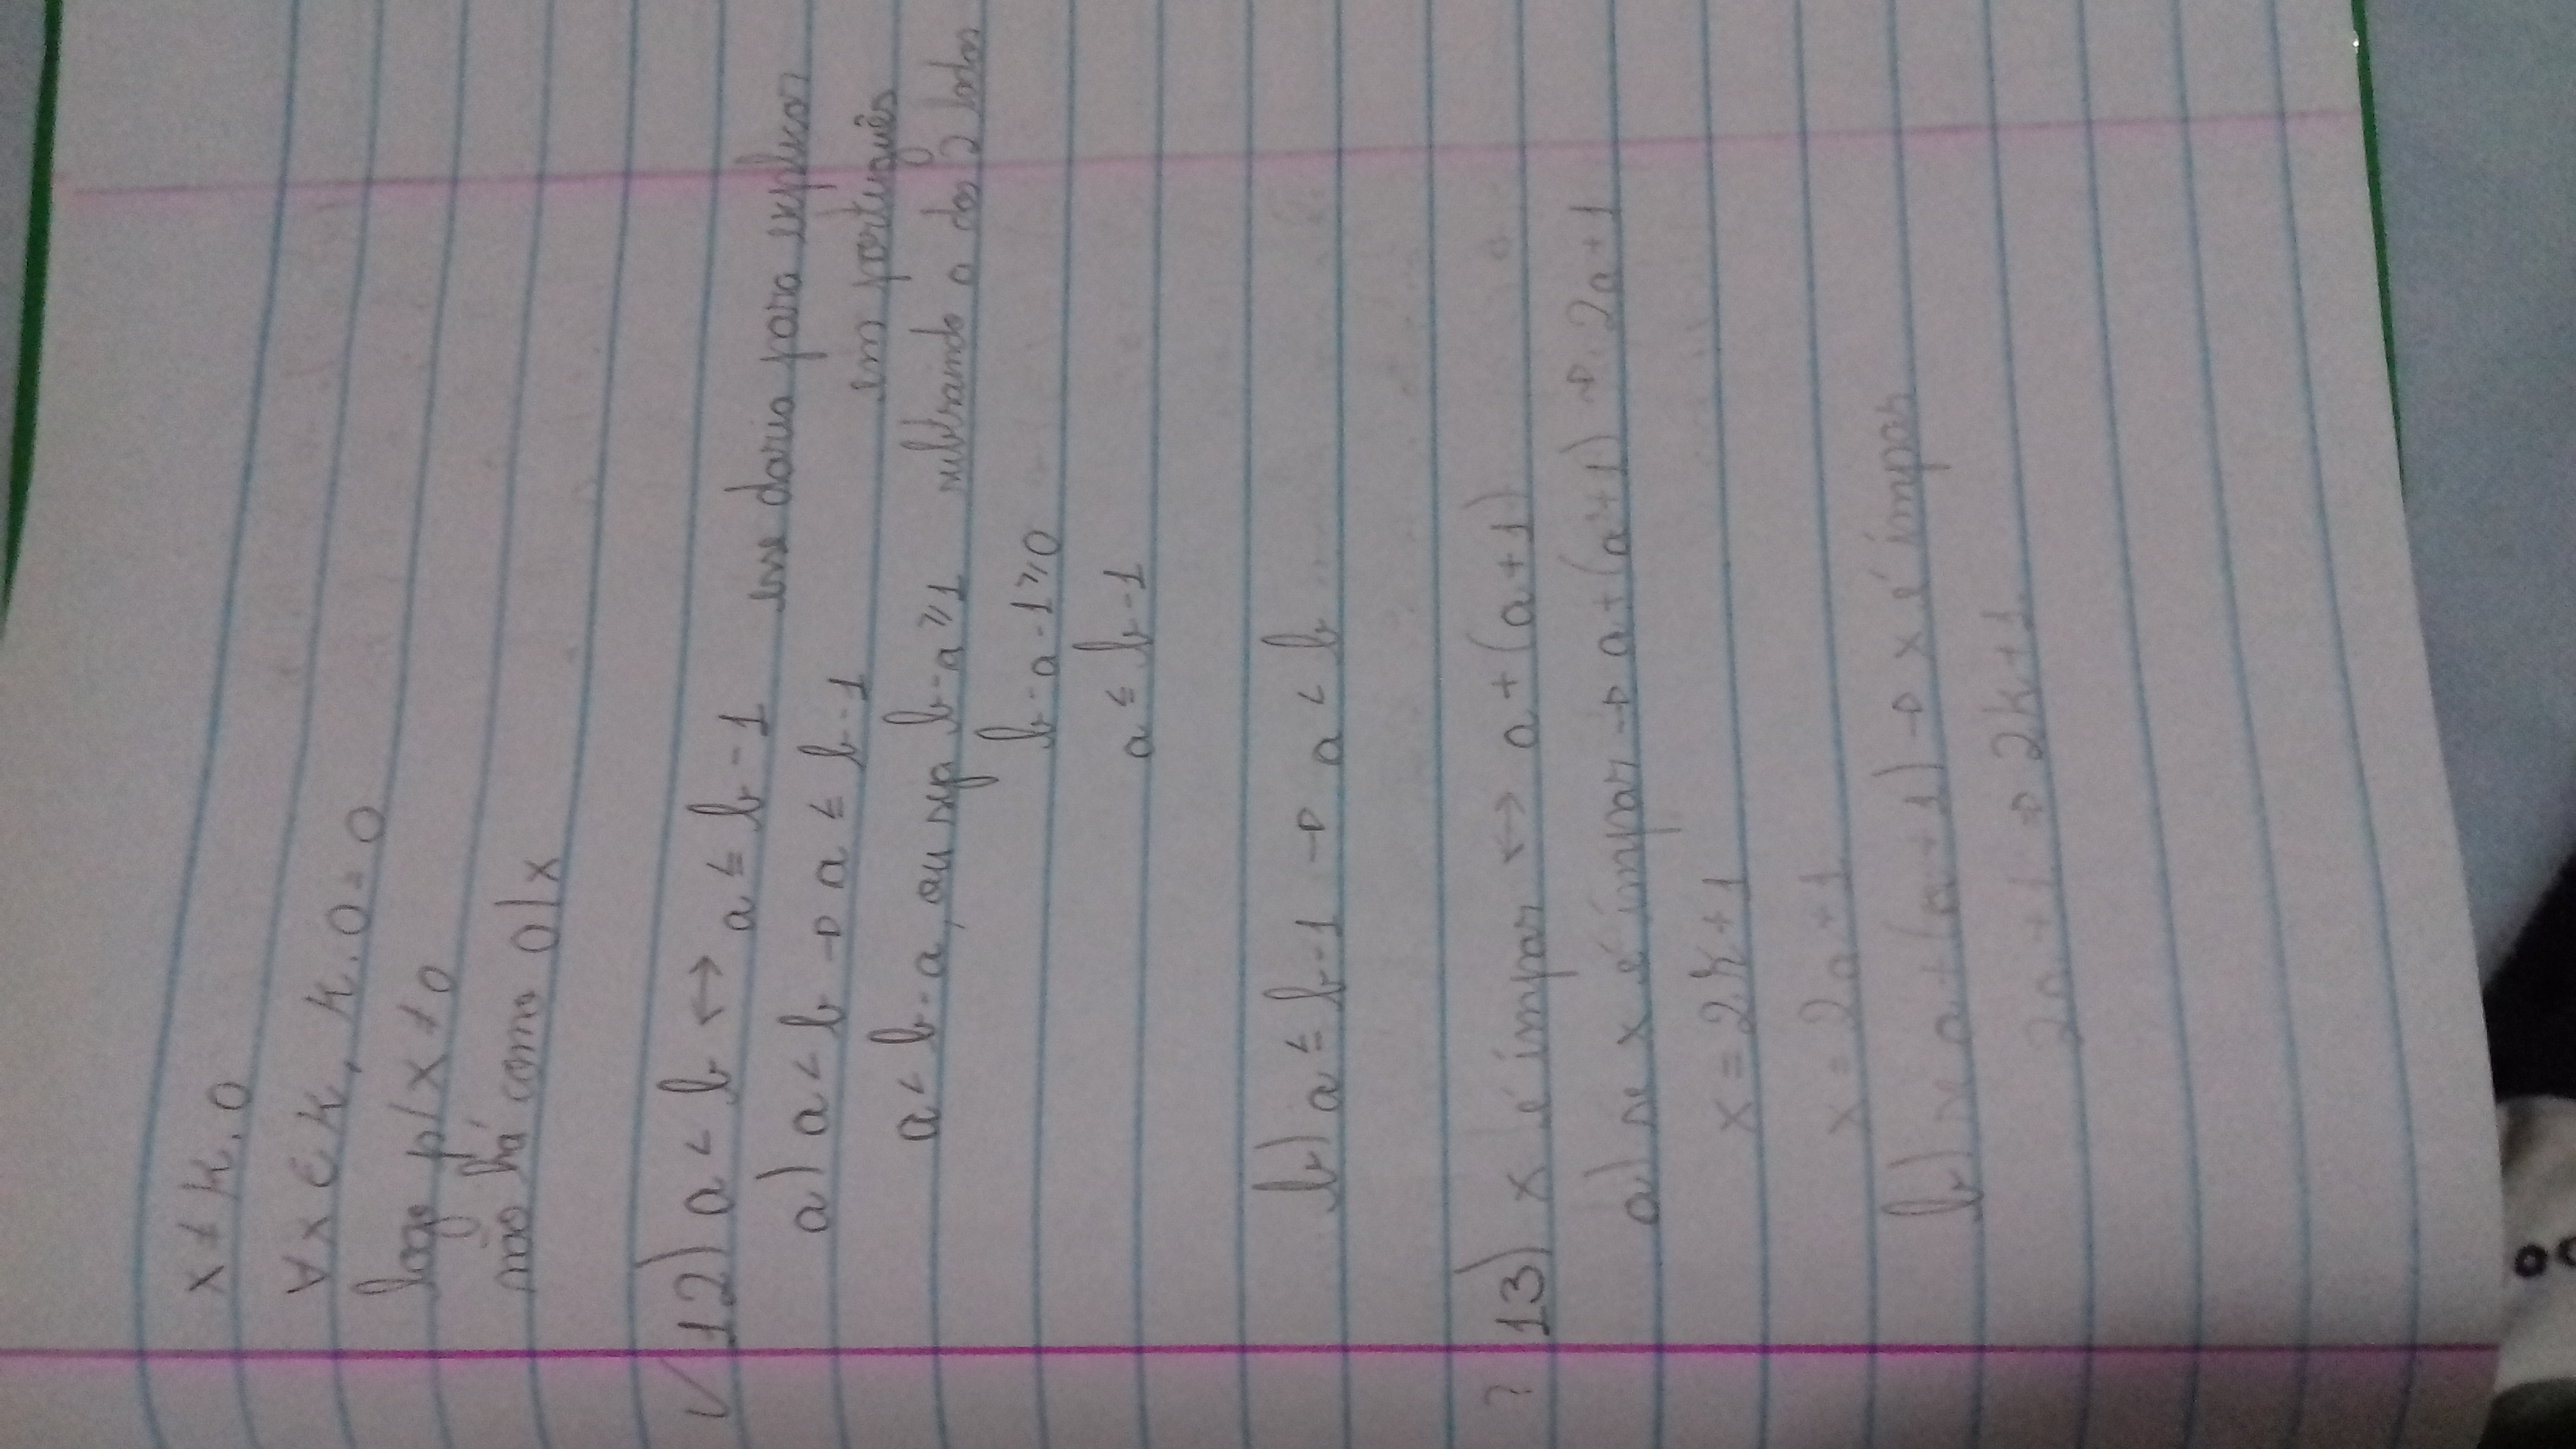 x ≠ k . 0
∀x ∈ k, k . 0 = 0
logo p/ x ≠ 0
não há como 0|x
✓ 12) a < b ↔ a ≤ b - 1 esse daria para explicar
em português
a) a < b → a ≤ b - 1
a < b - a, ou seja b - a ≥ 1 subtraindo a dos 2 lados
b - a - 1 ≥ 0
a ≤ b - 1
b) a ≤ b - 1 → a < b
? 13) x é ímpar ↔ a + (a + 1)
a) se x é ímpar → a + (a + 1) → 2a + 1
x = 2k + 1
x = 2a + 1
b) se a + (a + 1) → x é ímpar
2a + 1 → 2k + 1